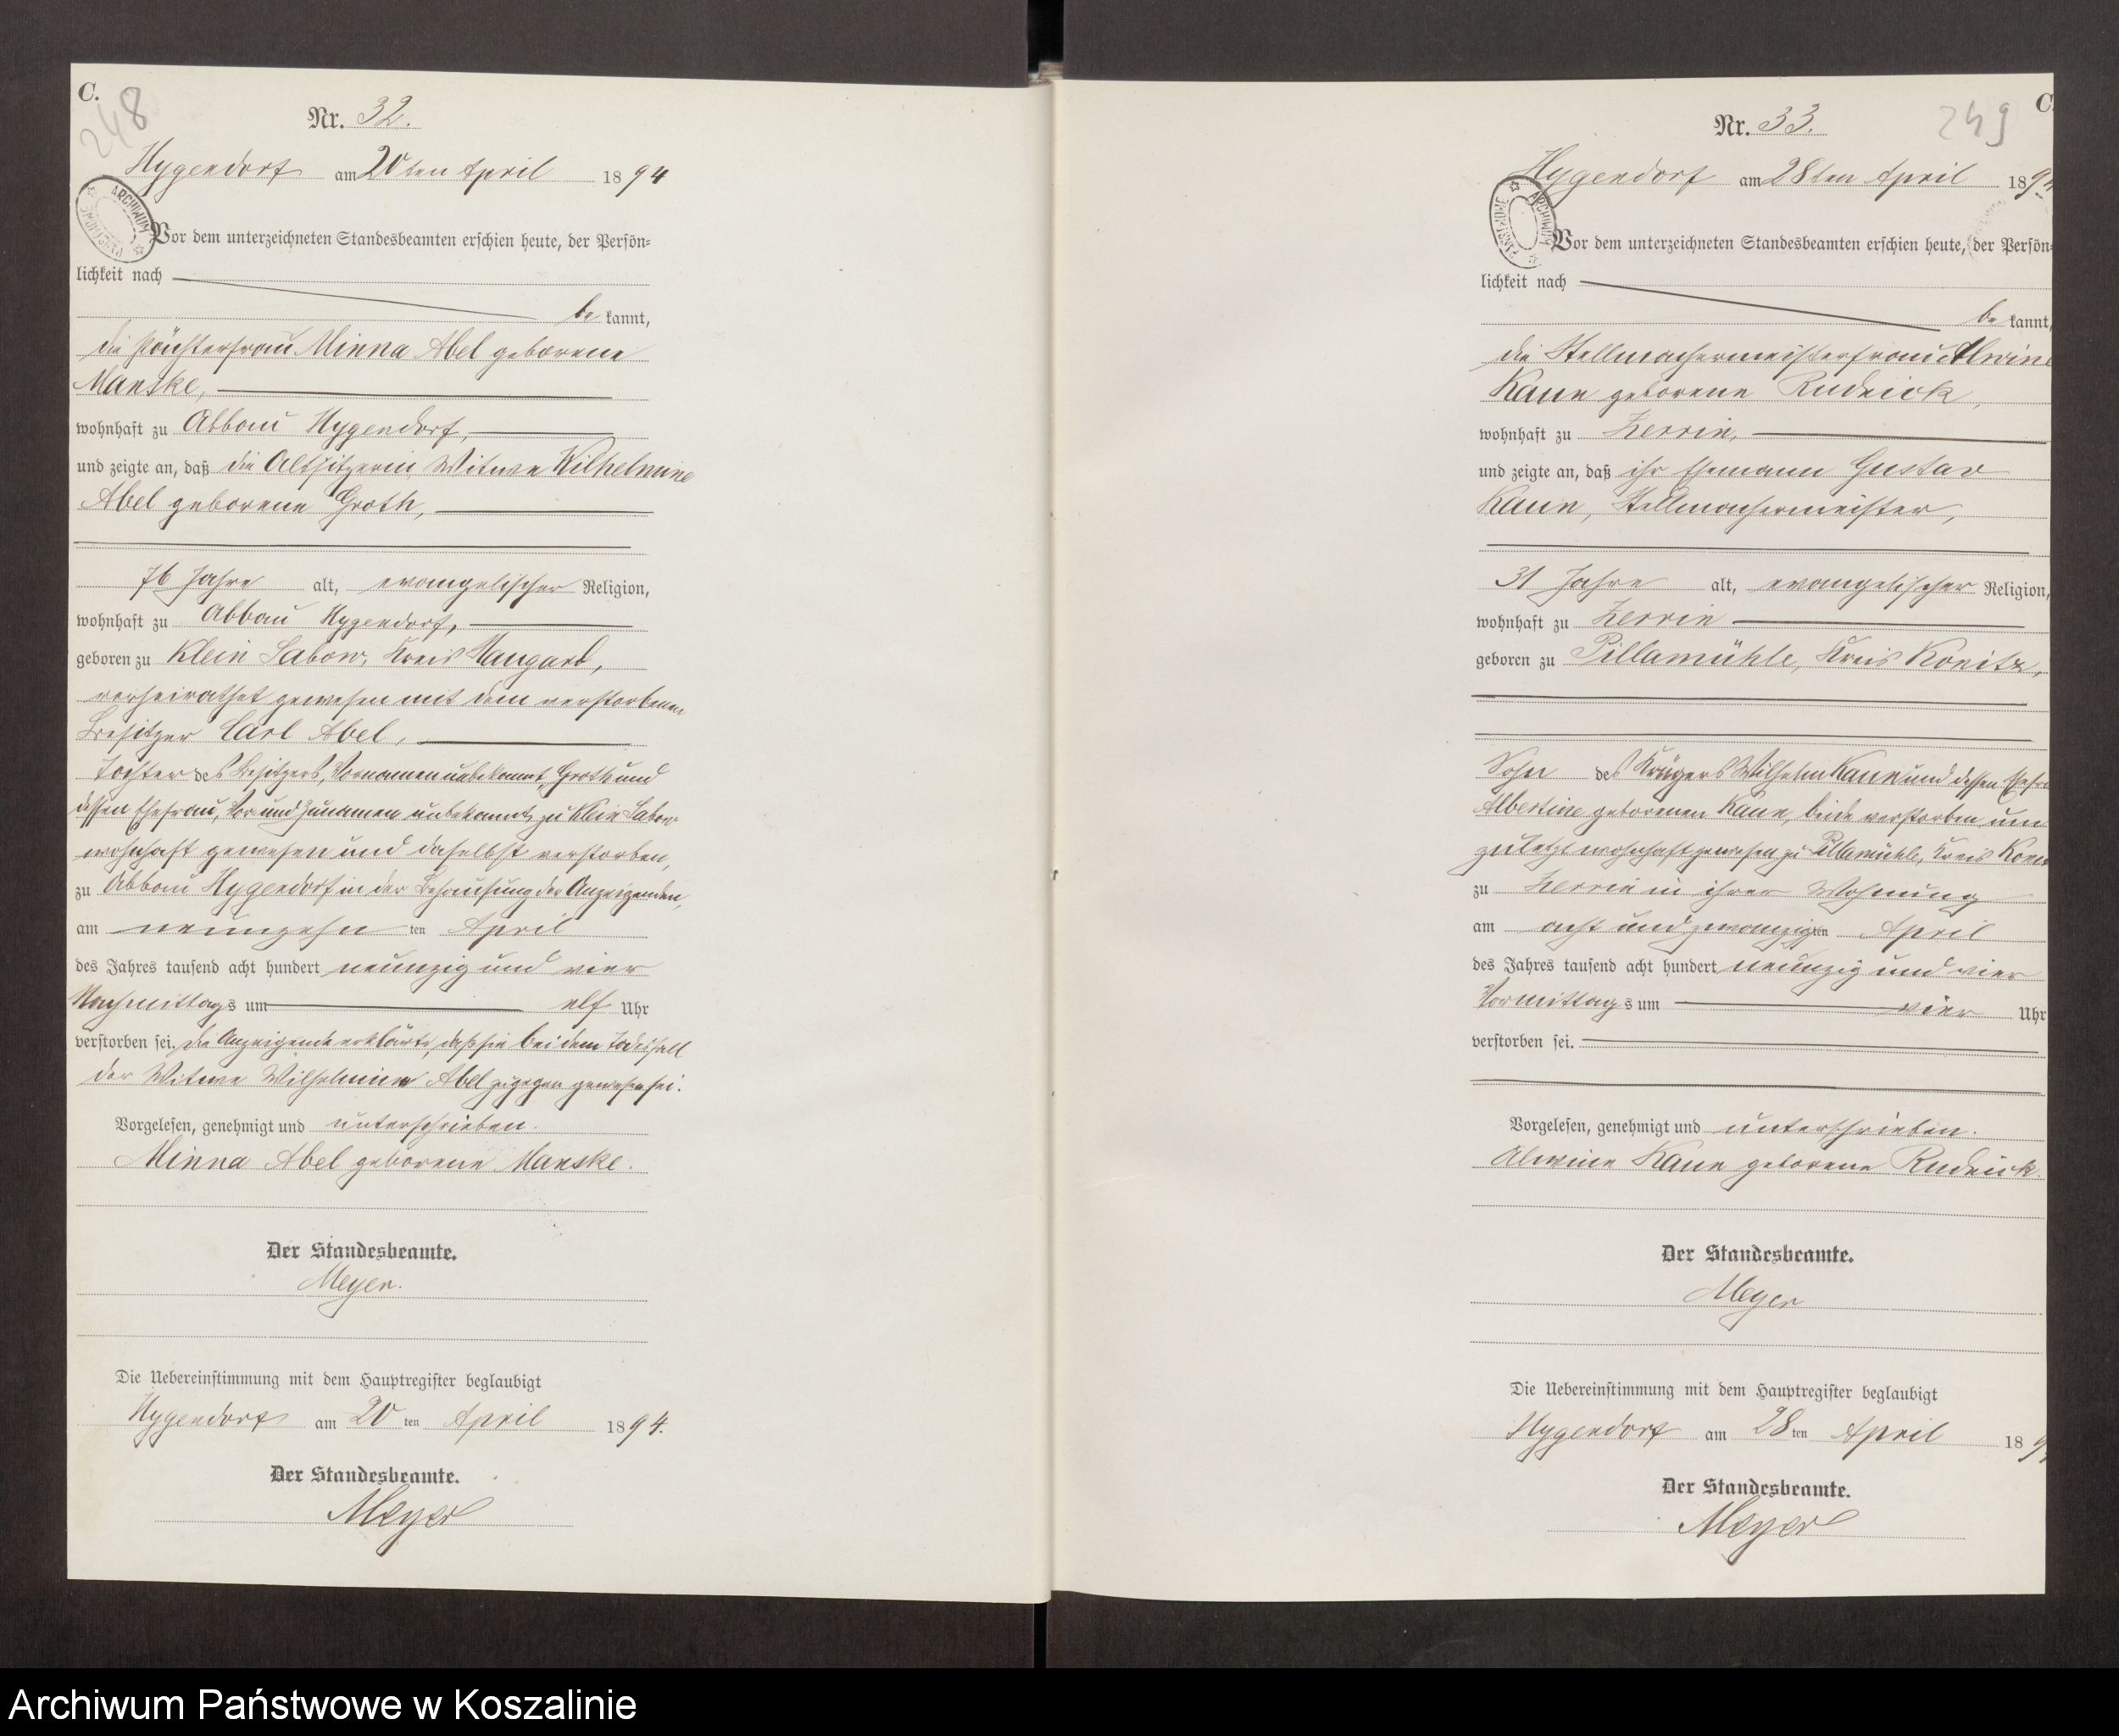 C.
248
Nr. 32.
Hygendorf am 20ten April 1894
ARCHIWUM PAŃSTWOWE
Vor dem unterzeichneten Standesbeamten erschien heute, der Persön=
lichkeit nach
be kannt,
die Pächterfrau Minna Abel geborene
Manske,
wohnhaft zu Abbau Hygendorf,
und zeigte an, daß die Altsitzerin Witwe Wilhelmine
Abel geborene Groth,
76 Jahre alt, evangelischer Religion,
wohnhaft zu Abbau Hygendorf,
geboren zu Klein Sabow, Kreis Naugard,
verheirathet gewesen mit dem verstorbenen
Besitzer Carl Abel,
Tochter des Besitzers, Vornamen unbekannt, Groth und
dessen Ehefrau, Vor und Zunamen unbekannt, zu Klein Sabow
wohnhaft gewesen und daselbst verstorben,
zu Abbau Hygendorf in der Behausung der Anzeigenden,
am neunzehn ten April
des Jahres tausend acht hundert neunzig und vier
Nachmittags um elf Uhr
verstorben sei. Die Anzeigende erklärte, daß sie bei dem Todesfall
der Witwe Wilhelmine Abel zugegen gewesen sei.
Vorgelesen, genehmigt und unterschrieben.
Minna Abel geborene Manske.
Der Standesbeamte.
Meyer.
Die Uebereinstimmung mit dem Hauptregister beglaubigt
Hygendorf am 20 ten April 1894.
Der Standesbeamte.
Meyer
C.
249
Nr. 33.
Hygendorf am 28ten April 189
ARCHIWUM PAŃSTWOWE
Vor dem unterzeichneten Standesbeamten erschien heute, der Persön=
lichkeit nach
be kannt,
die Stellmachermeisterfrau Alwine
Kaun geborene Rudnick,
wohnhaft zu Zerrin,
und zeigte an, daß ihr Ehemann Gustav
Kaun, Stellmachermeister,
31 Jahre alt, evangelischer Religion,
wohnhaft zu Zerrin
geboren zu Pillamühle, Kreis Konitz,
Sohn des Krügers Wilhelm Kaun und dessen Ehefra
Albertine geborenen Kaun, beide verstorben un
zuletzt wohnhaft gewesen zu Pillamühle, Kreis Koni
zu Zerrin in ihrer Wohnung
am acht und zwanzigten April
des Jahres tausend acht hundert neunzig und vier
Vormittags um vier Uhr
verstorben sei.
Vorgelesen, genehmigt und unterschrieben.
Alwine Kaun geborene Rudnick.
Der Standesbeamte.
Meyer
Die Uebereinstimmung mit dem Hauptregister beglaubigt
Hygendorf am 28 ten April 189
Der Standesbeamte.
Meyer
Archiwum Państwowe w Koszalinie